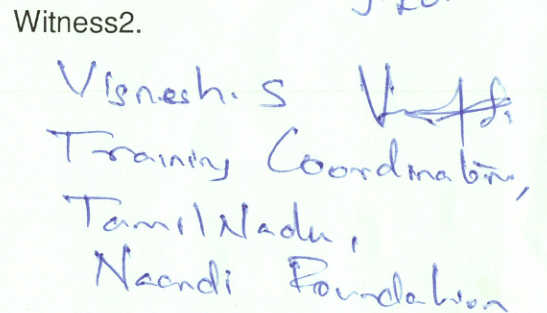 Witness2.
Visnesh. S
Training Coordination,
TamilNadu,
Naandi Foundation